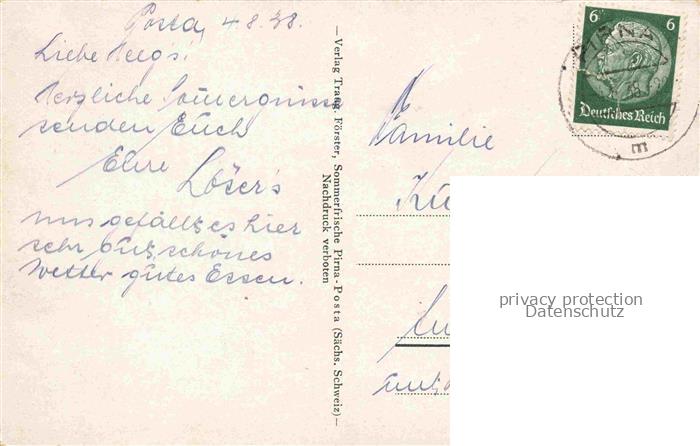 Posta, 4.8.38.
Liebe
Herzliche Sommergrüsse
senden Euch
Eure
Löser's
uns gefällt es hier
sehr gut, schönes
Wetter gutes Essen.
— Verlag Traug. Förster, Sommerfrische Pirna-Posta (Sächs. Schweiz) —
Nachdruck verboten
6
PIRNA
Deutsches Reich
E
Familie
privacy protection
Datenschutz